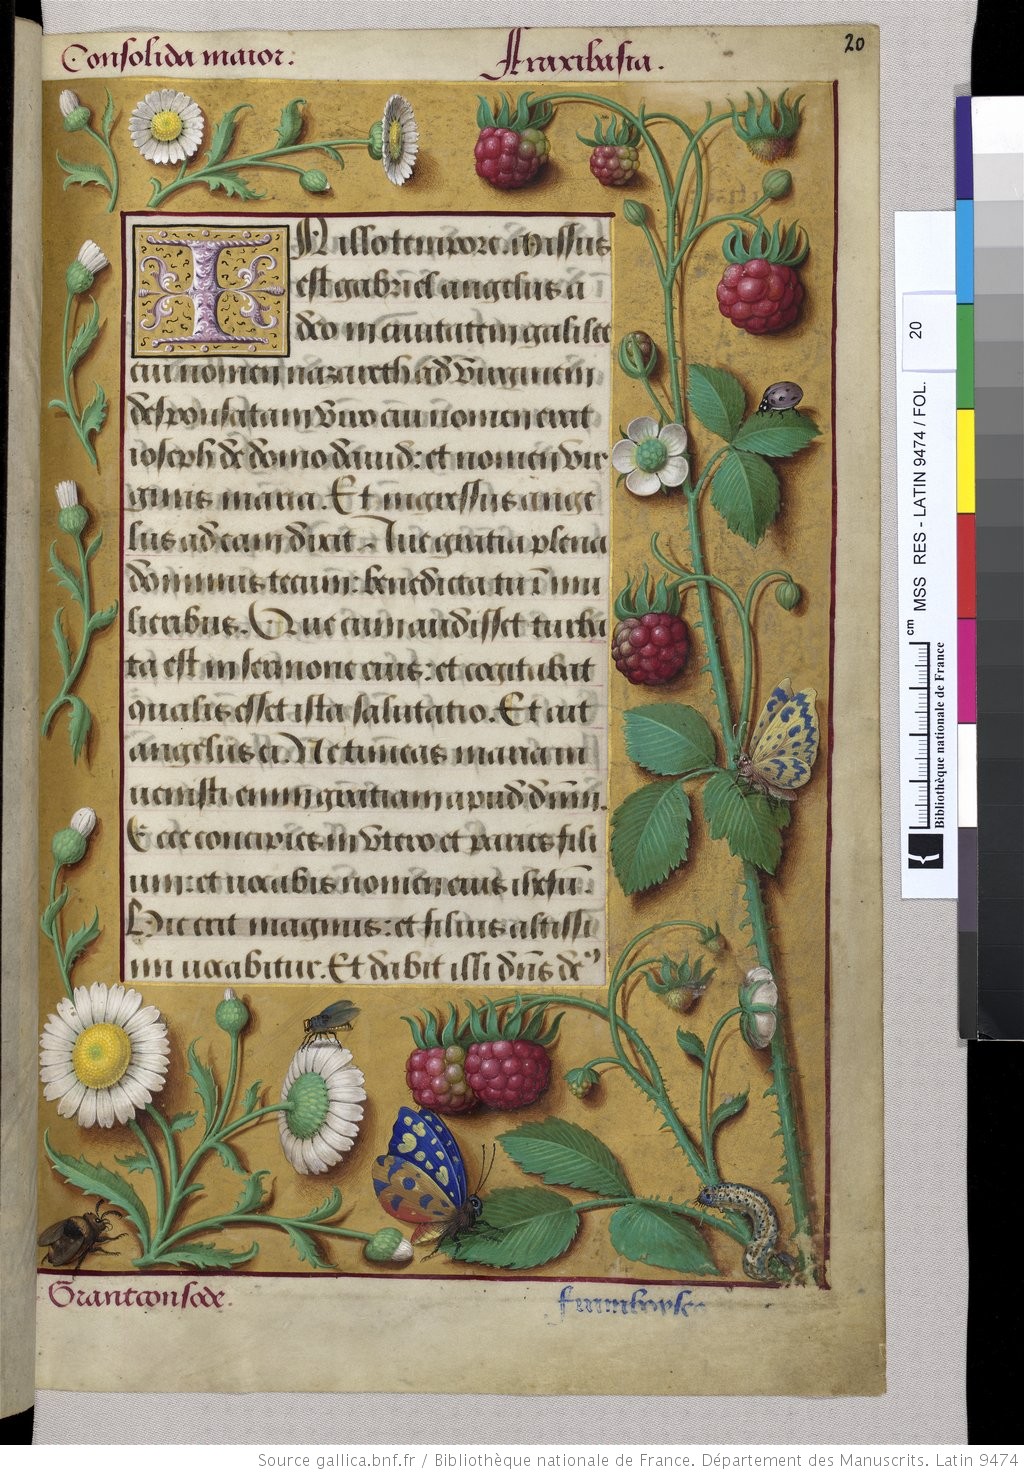 Consolida maior:
Fraxibasia.
20
IN illo tempore. Missus
est gabriel angelus a
deo in ciuitatem galilee
cui nomen nazareth ad virginem
desponsatam viro cui nomen erat
ioseph de domo dauid: et nomen vir
ginis maria. Et ingressus ange
lus ad eam dixit. Aue gratia plena
dominus tecum: benedicta tu ī mu
lieribus. Que cum audisset turba
ta est in sermone eius: et cogitabat
qualis esset ista salutatio. Et ait
angelus ei. Ne timeas maria in
uenisti enim gratiam apud dn̄m.
Ecce concipies in vtero et paries fili
um: et uocabis nomen eius ihesū.
Hic erit magnus: et filius altissi
mi uocabitur. Et dabit illi dn̄s de⁹
Grant consode.
framboyse
20
MSS RES - LATIN 9474 / FOL.
cm
Bibliothèque nationale de France
Source gallica.bnf.fr / Bibliothèque nationale de France. Département des Manuscrits. Latin 9474